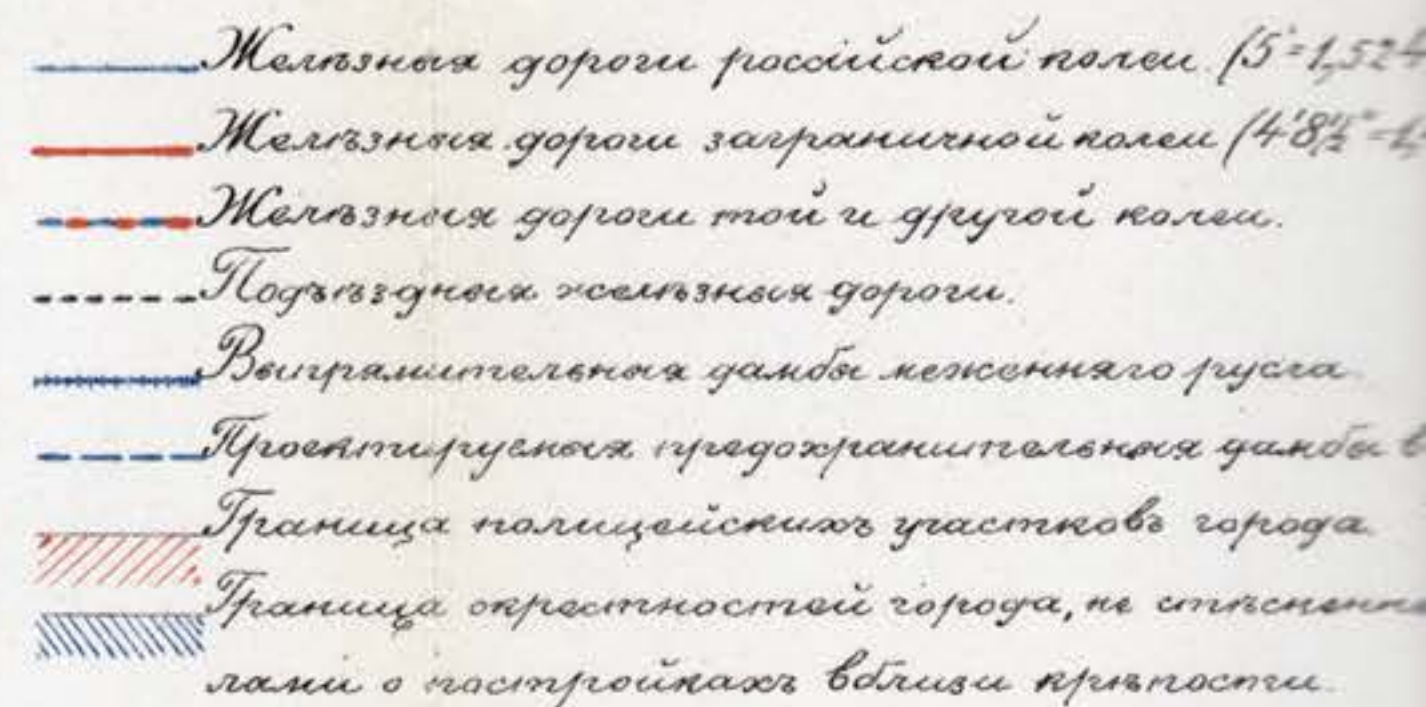 Желѣзныя дороги россійской колеи (5'=1,524
Желѣзныя дороги заграничной колеи (4'8½"=1,
Желѣзныя дороги той и другой колеи.
Подъѣздныя желѣзныя дороги.
Выпрямительныя дамбы меженняго русла
Проектируемыя предохранительныя дамбы
Граница полицейскихъ участковъ города.
Граница окрестностей города, не стѣсненн
лами о постройкахъ вблизи крѣпости.